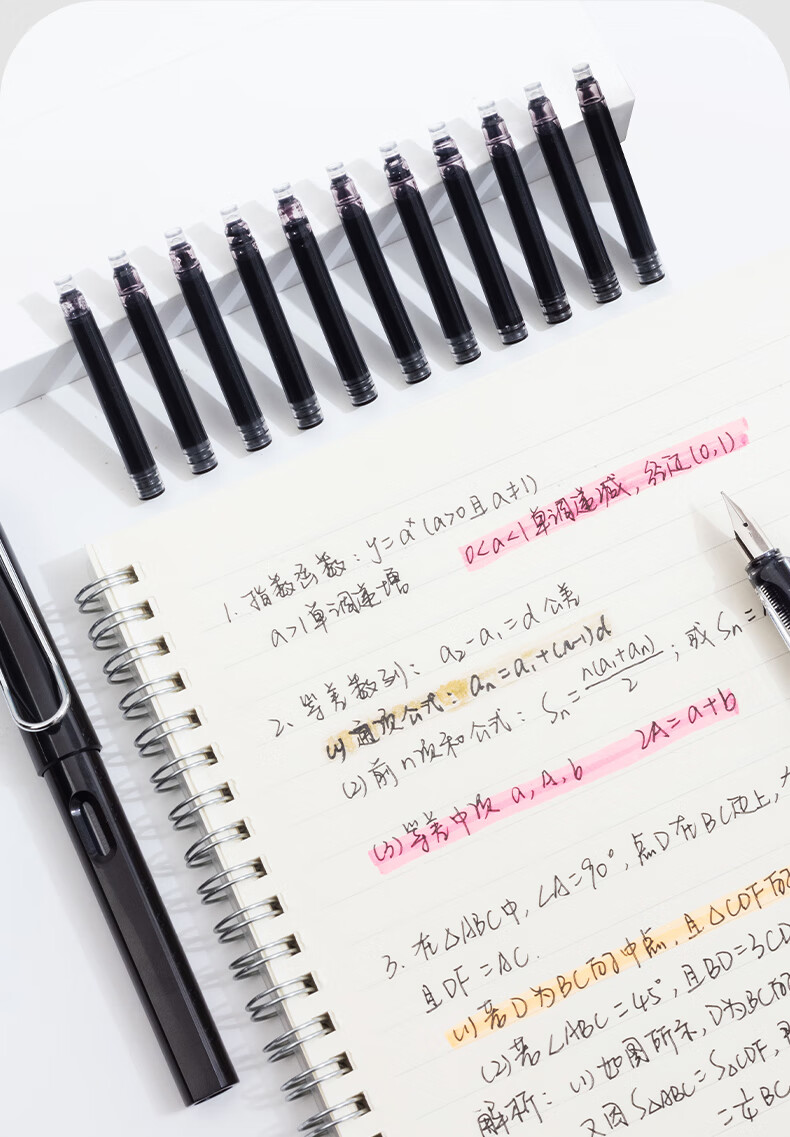 1. 指数函数：y=aˣ（a>0且a≠1）
a>1单调递增 0<a<1单调递减，经过(0,1)
2、等差数列：a₂-a₁=d 公差
(1)通项公式：aₙ=a₁+(n-1)d
(2)前n项和公式：Sₙ=n(a₁+aₙ)/2；或Sₙ=
(3)等差中项 a,A,b 2A=a+b
3. 在△ABC中，∠A=90°，点D在BC边上，
且DF=AC.
(1)若D为BC的中点，且△CDF的
(2)若∠ABC=45°，且BD=3CD
解析：(1)如图所示，D为BC的
又因S△ABC=S△CDF，
=在BC